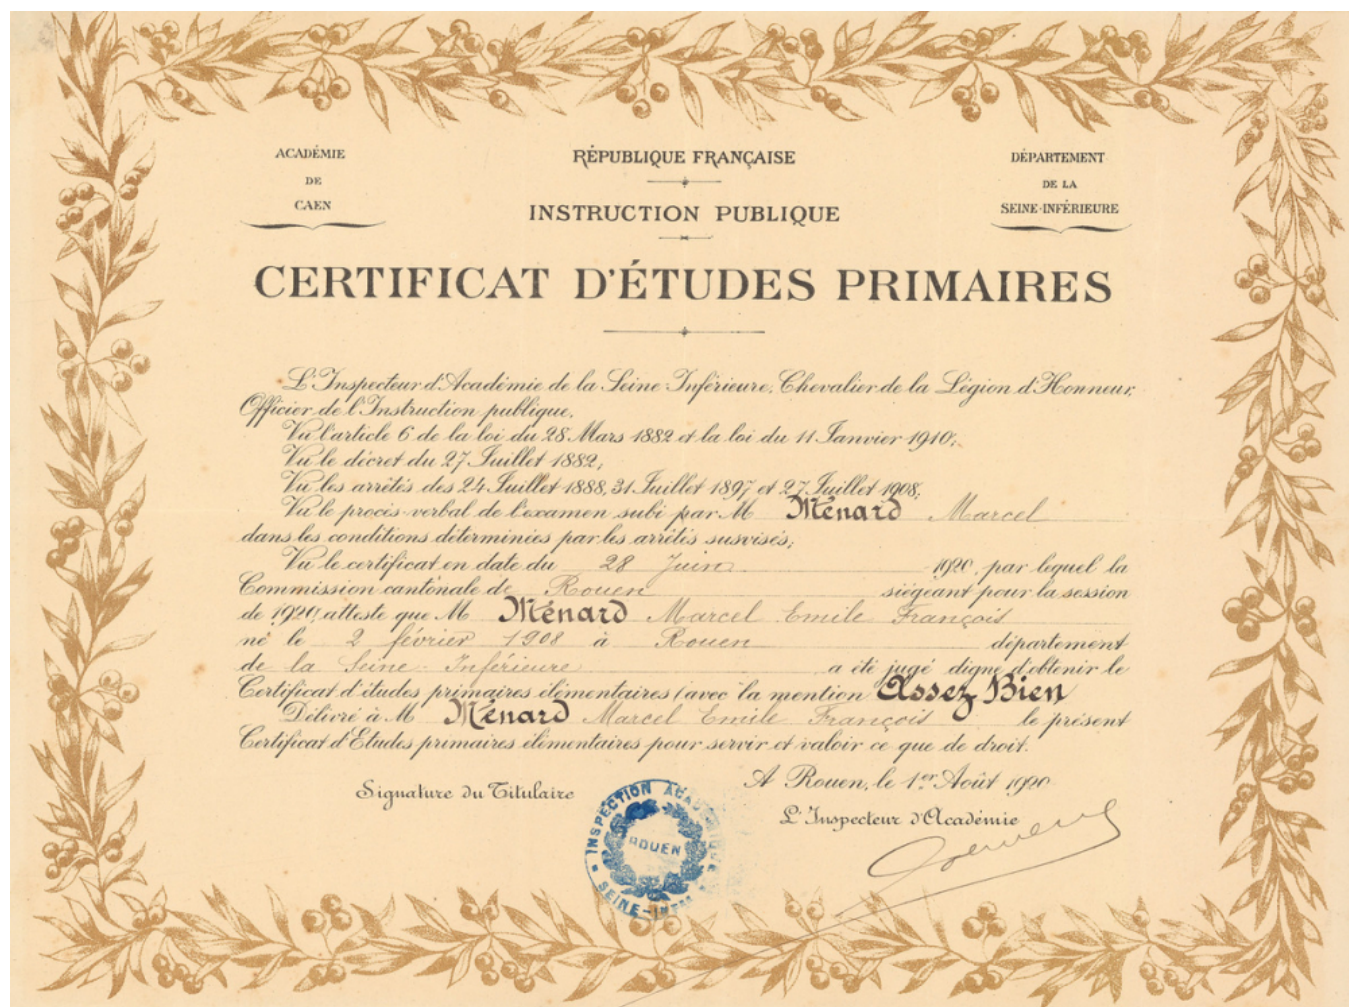 ACADÉMIE
DE
CAEN
RÉPUBLIQUE FRANÇAISE
INSTRUCTION PUBLIQUE
DÉPARTEMENT
DE LA
SEINE-INFÉRIEURE
CERTIFICAT D'ÉTUDES PRIMAIRES
L'Inspecteur d'Académie de la Seine Inférieure, Chevalier de la Légion d'Honneur,
Officier de l'Instruction publique,
Vu l'article 6 de la loi du 28 Mars 1882 et la loi du 11 Janvier 1910;
Vu le décret du 27 Juillet 1882;
Vu les arrêtés des 24 Juillet 1888, 31 Juillet 1897 et 27 Juillet 1908;
Vu le procès-verbal de l'examen subi par M Ménard Marcel
dans les conditions déterminées par les arrêtés susvisés;
Vu le certificat en date du 28 Juin 1920, par lequel la
Commission cantonale de Rouen siégeant pour la session
de 1920, atteste que M Ménard Marcel Emile François
né le 2 février 1908 à Rouen département
de la Seine-Inférieure a été jugé digne d'obtenir le
Certificat d'études primaires élémentaires (avec la mention Assez Bien
Délivré à M Ménard Marcel Emile François le présent
Certificat d'Etudes primaires élémentaires pour servir et valoir ce que de droit.
A Rouen, le 1er Août 1920
Signature du Titulaire
L'Inspecteur d'Académie
INSPECTION ACADÉMIQUE
ROUEN
SEINE-INFRE